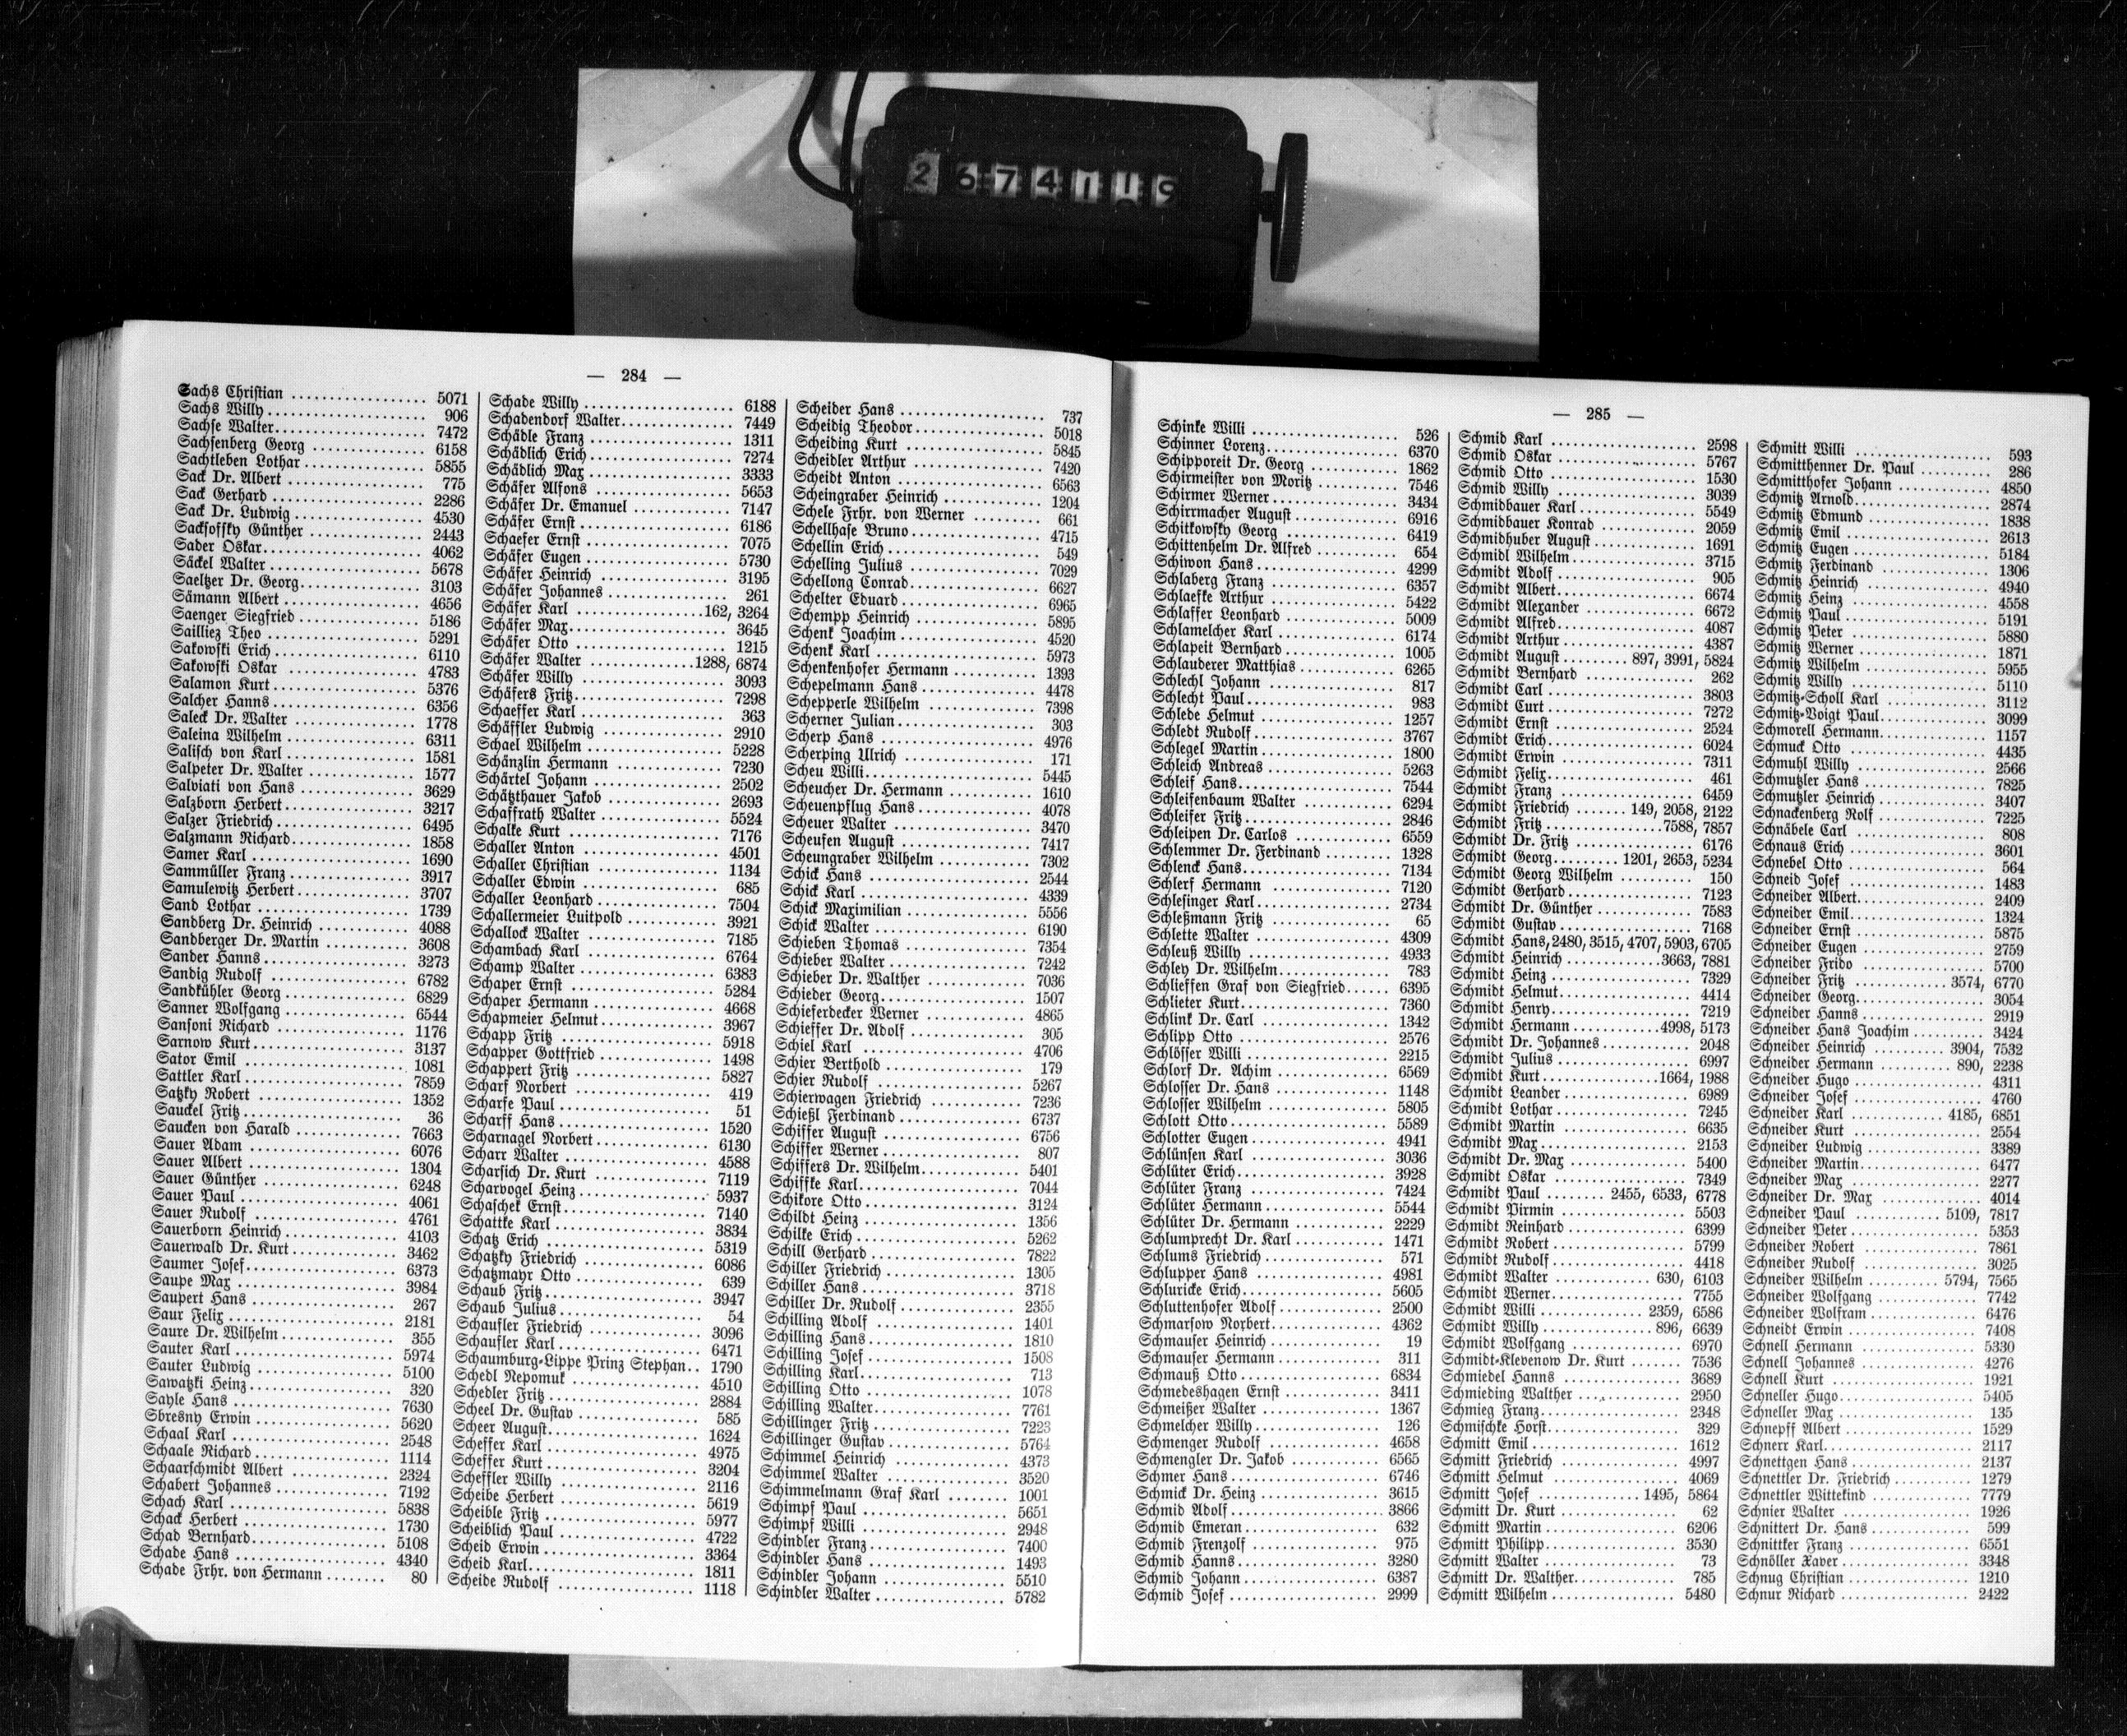 2 6 7 4 1 1 9
— 284 —
Sachs Christian 5071
Sachs Willy 906
Sachse Walter 7472
Sachsenberg Georg 6158
Sachtleben Lothar 5855
Sack Dr. Albert 775
Sack Gerhard 2286
Sack Dr. Ludwig 4530
Sacksofsky Günther 2443
Sader Oskar 4062
Säckel Walter 5678
Saeltzer Dr. Georg 3103
Sämann Albert 4656
Saenger Siegfried 5186
Sailliez Theo 5291
Sakowski Erich 6110
Sakowski Oskar 4783
Salamon Kurt 5376
Salcher Hanns 6356
Saleck Dr. Walter 1778
Saleina Wilhelm 6311
Salisch von Karl 1581
Salpeter Dr. Walter 1577
Salviati von Hans 3629
Salzborn Herbert 3217
Salzer Friedrich 6495
Salzmann Richard 1858
Samer Karl 1690
Sammüller Franz 3917
Samulewitz Herbert 3707
Sand Lothar 1739
Sandberg Dr. Heinrich 4088
Sandberger Dr. Martin 3608
Sander Hanns 3273
Sandig Rudolf 6782
Sandkühler Georg 6829
Sanner Wolfgang 6544
Sansoni Richard 1176
Sarnow Kurt 3137
Sator Emil 1081
Sattler Karl 7859
Satzky Robert 1352
Sauckel Fritz 36
Saucken von Harald 7663
Sauer Adam 6076
Sauer Albert 1304
Sauer Günther 6248
Sauer Paul 4061
Sauer Rudolf 4761
Sauerborn Heinrich 4103
Sauerwald Dr. Kurt 3462
Saumer Josef 6373
Saupe Max 3984
Saupert Hans 267
Saur Felix 2181
Saure Dr. Wilhelm 355
Sauter Karl 5974
Sauter Ludwig 5100
Sawatzki Heinz 320
Sayle Hans 7630
Sbresny Erwin 5620
Schaal Karl 2548
Schaale Richard 1114
Schaarschmidt Albert 2324
Schabert Johannes 7192
Schach Karl 5838
Schack Herbert 1730
Schad Bernhard 5108
Schade Hans 4340
Schade Frhr. von Hermann 80
Schade Willy 6188
Schadendorf Walter 7449
Schädle Franz 1311
Schädlich Erich 7274
Schädlich Max 3333
Schäfer Alfons 5653
Schäfer Dr. Emanuel 7147
Schäfer Ernst 6186
Schaefer Ernst 7075
Schäfer Eugen 5730
Schäfer Heinrich 3195
Schäfer Johannes 261
Schäfer Karl 162, 3264
Schäfer Max 3645
Schäfer Otto 1215
Schäfer Walter 1288, 6874
Schäfer Willy 3093
Schäfers Fritz 7298
Schaeffer Karl 363
Schäffler Ludwig 2910
Schael Wilhelm 5228
Schänzlin Hermann 7230
Schärtel Johann 2502
Schätzthauer Jakob 2693
Schaffrath Walter 5524
Schalke Kurt 7176
Schaller Anton 4501
Schaller Christian 1134
Schaller Edwin 685
Schaller Leonhard 7504
Schallermeier Luitpold 3921
Schallock Walter 7185
Schambach Karl 6764
Schamp Walter 6383
Schaper Ernst 5284
Schaper Hermann 4668
Schapmeier Helmut 3967
Schapp Fritz 5918
Schapper Gottfried 1498
Schappert Fritz 5827
Scharf Norbert 419
Scharfe Paul 51
Scharff Hans 1520
Scharnagel Norbert 6130
Scharr Walter 4588
Scharsich Dr. Kurt 7119
Scharvogel Heinz 5937
Schaschek Ernst 7140
Schattke Karl 3834
Schatz Erich 5319
Schatzky Friedrich 6086
Schatzmayr Otto 639
Schaub Fritz 3947
Schaub Julius 54
Schaufler Friedrich 3096
Schaufler Karl 6471
Schaumburg-Lippe Prinz Stephan 1790
Schedl Nepomuk 4510
Schedler Fritz 2884
Scheel Dr. Gustav 585
Scheer August 1624
Scheffer Karl 4975
Scheffer Kurt 3204
Scheffler Willy 2116
Scheibe Herbert 5619
Scheible Fritz 5977
Scheiblich Paul 4722
Scheid Erwin 3364
Scheid Karl 1811
Scheide Rudolf 1118
Scheider Hans 737
Scheidig Theodor 5018
Scheiding Kurt 5845
Scheidler Arthur 7420
Scheidt Anton 6563
Scheingraber Heinrich 1204
Schele Frhr. von Werner 661
Schellhase Bruno 4715
Schellin Erich 549
Schelling Julius 7029
Schellong Conrad 6627
Schelter Eduard 6965
Schempp Heinrich 5895
Schenk Joachim 4520
Schenk Karl 5973
Schenkenhofer Hermann 1393
Schepelmann Hans 4478
Schepperle Wilhelm 7398
Scherner Julian 303
Scherp Hans 4976
Scherping Ulrich 171
Scheu Willi 5445
Scheucher Dr. Hermann 1610
Scheuenpflug Hans 4078
Scheuer Walter 3470
Scheufen August 7417
Scheungraber Wilhelm 7302
Schick Hans 2544
Schick Karl 4339
Schick Maximilian 5556
Schick Walter 6190
Schieben Thomas 7354
Schieber Walter 7242
Schieber Dr. Walther 7036
Schieder Georg 1507
Schieferdecker Werner 4865
Schieffer Dr. Adolf 305
Schiel Karl 4706
Schier Berthold 179
Schier Rudolf 5267
Schierwagen Friedrich 7236
Schießl Ferdinand 6737
Schiffer August 6756
Schiffer Werner 807
Schiffers Dr. Wilhelm 5401
Schiffke Karl 7044
Schikore Otto 3124
Schildt Heinz 1356
Schilke Erich 5262
Schill Gerhard 7822
Schiller Friedrich 1305
Schiller Hans 3718
Schiller Dr. Rudolf 2355
Schilling Adolf 1401
Schilling Hans 1810
Schilling Josef 1508
Schilling Karl 713
Schilling Otto 1078
Schilling Walter 7761
Schillinger Fritz 7223
Schillinger Gustav 5764
Schimmel Heinrich 4373
Schimmel Walter 3520
Schimmelmann Graf Karl 1001
Schimpf Paul 5651
Schimpf Willi 2948
Schindler Franz 7400
Schindler Hans 1493
Schindler Johann 5510
Schindler Walter 5782
— 285 —
Schinke Willi 526
Schinner Lorenz 6370
Schipporeit Dr. Georg 1862
Schirmeister von Moritz 7546
Schirmer Werner 3434
Schirrmacher August 6916
Schitkowsky Georg 6419
Schittenhelm Dr. Alfred 654
Schiwon Hans 4299
Schlaberg Franz 6357
Schlaefke Arthur 5422
Schlaffer Leonhard 5009
Schlamelcher Karl 6174
Schlapeit Bernhard 1005
Schlauderer Matthias 6265
Schlechl Johann 817
Schlecht Paul 983
Schlede Helmut 1257
Schledt Rudolf 3767
Schlegel Martin 1800
Schleich Andreas 5263
Schleif Hans 7544
Schleifenbaum Walter 6294
Schleifer Fritz 2846
Schleipen Dr. Carlos 6559
Schlemmer Dr. Ferdinand 1328
Schlenck Hans 7134
Schlerf Hermann 7120
Schlesinger Karl 2734
Schleßmann Fritz 65
Schlette Walter 4309
Schleuß Willy 4933
Schley Dr. Wilhelm 783
Schlieffen Graf von Siegfried 6395
Schlieter Kurt 7360
Schlink Dr. Carl 1342
Schlipp Otto 2576
Schlösser Willi 2215
Schlorf Dr. Achim 6569
Schlosser Dr. Hans 1148
Schlosser Wilhelm 5805
Schlott Otto 5589
Schlotter Eugen 4941
Schlünsen Karl 3036
Schlüter Erich 3928
Schlüter Franz 7424
Schlüter Hermann 5544
Schlüter Dr. Hermann 2229
Schlumprecht Dr. Karl 1471
Schlums Friedrich 571
Schlupper Hans 4981
Schluricke Erich 5605
Schluttenhofer Adolf 2500
Schmarsow Norbert 4362
Schmauser Heinrich 19
Schmauser Hermann 311
Schmauß Otto 6834
Schmedeshagen Ernst 3411
Schmeißer Walter 1367
Schmelcher Willy 126
Schmenger Rudolf 4658
Schmengler Dr. Jakob 6565
Schmer Hans 6746
Schmick Dr. Heinz 3615
Schmid Adolf 3866
Schmid Emeran 632
Schmid Frenzolf 975
Schmid Hanns 3280
Schmid Johann 6387
Schmid Josef 2999
Schmid Karl 2598
Schmid Oskar 5767
Schmid Otto 1530
Schmid Willy 3039
Schmidbauer Karl 5549
Schmidbauer Konrad 2059
Schmidhuber August 1691
Schmidl Wilhelm 3715
Schmidt Adolf 905
Schmidt Albert 6674
Schmidt Alexander 6672
Schmidt Alfred 4087
Schmidt Arthur 4387
Schmidt August 897, 3991, 5824
Schmidt Bernhard 262
Schmidt Carl 3803
Schmidt Curt 7272
Schmidt Ernst 2524
Schmidt Erich 6024
Schmidt Erwin 7311
Schmidt Felix 461
Schmidt Franz 6459
Schmidt Friedrich 149, 2058, 2122
Schmidt Fritz 7588, 7857
Schmidt Dr. Fritz 6176
Schmidt Georg 1201, 2653, 5234
Schmidt Georg Wilhelm 150
Schmidt Gerhard 7123
Schmidt Dr. Günther 7583
Schmidt Gustav 7168
Schmidt Hans, 2480, 3515, 4707, 5903, 6705
Schmidt Heinrich 3663, 7881
Schmidt Heinz 7329
Schmidt Helmut 4414
Schmidt Henry 7219
Schmidt Hermann 4998, 5173
Schmidt Dr. Johannes 2048
Schmidt Julius 6997
Schmidt Kurt 1664, 1988
Schmidt Leander 6989
Schmidt Lothar 7245
Schmidt Martin 6635
Schmidt Max 2153
Schmidt Dr. Max 5400
Schmidt Oskar 7349
Schmidt Paul 2455, 6533, 6778
Schmidt Pirmin 5503
Schmidt Reinhard 6399
Schmidt Robert 5799
Schmidt Rudolf 4418
Schmidt Walter 630, 6103
Schmidt Werner 7755
Schmidt Willi 2359, 6586
Schmidt Willy 896, 6639
Schmidt Wolfgang 6970
Schmidt-Klevenow Dr. Kurt 7536
Schmiedel Hanns 3689
Schmieding Walther 2950
Schmieg Franz 2348
Schmischke Horst 329
Schmitt Emil 1612
Schmitt Friedrich 4997
Schmitt Helmut 4069
Schmitt Josef 1495, 5864
Schmitt Dr. Kurt 62
Schmitt Martin 6206
Schmitt Philipp 3530
Schmitt Walter 73
Schmitt Dr. Walther 785
Schmitt Wilhelm 5480
Schmitt Willi 593
Schmitthenner Dr. Paul 286
Schmitthofer Johann 4850
Schmitz Arnold 2874
Schmitz Edmund 1838
Schmitz Emil 2613
Schmitz Eugen 5184
Schmitz Ferdinand 1306
Schmitz Heinrich 4940
Schmitz Heinz 4558
Schmitz Paul 5191
Schmitz Peter 5880
Schmitz Werner 1871
Schmitz Wilhelm 5955
Schmitz Willy 5110
Schmitz-Scholl Karl 3112
Schmitz-Voigt Paul 3099
Schmorell Hermann 1157
Schmuck Otto 4435
Schmuhl Willy 2566
Schmutzler Hans 7825
Schmutzler Heinrich 3407
Schnackenberg Rolf 7225
Schnäbele Carl 808
Schnaus Erich 3601
Schnebel Otto 564
Schneid Josef 1483
Schneider Albert 2409
Schneider Emil 1324
Schneider Ernst 5875
Schneider Eugen 2759
Schneider Frido 5700
Schneider Fritz 3574, 6770
Schneider Georg 3054
Schneider Hanns 2919
Schneider Hans Joachim 3424
Schneider Heinrich 3904, 7532
Schneider Hermann 890, 2238
Schneider Hugo 4311
Schneider Josef 4760
Schneider Karl 4185, 6851
Schneider Kurt 2554
Schneider Ludwig 3389
Schneider Martin 6477
Schneider Max 2277
Schneider Dr. Max 4014
Schneider Paul 5109, 7817
Schneider Peter 5353
Schneider Robert 7861
Schneider Rudolf 3025
Schneider Wilhelm 5794, 7565
Schneider Wolfgang 7742
Schneider Wolfram 6476
Schneidt Erwin 7408
Schnell Hermann 5330
Schnell Johannes 4276
Schnell Kurt 1921
Schneller Hugo 5405
Schneller Max 135
Schnepff Albert 1529
Schnerr Karl 2117
Schnettgen Hans 2137
Schnettler Dr. Friedrich 1279
Schnettler Wittekind 7779
Schnier Walter 1926
Schnittert Dr. Hans 599
Schnittker Franz 6551
Schnöller Xaver 3348
Schnug Christian 1210
Schnur Richard 2422